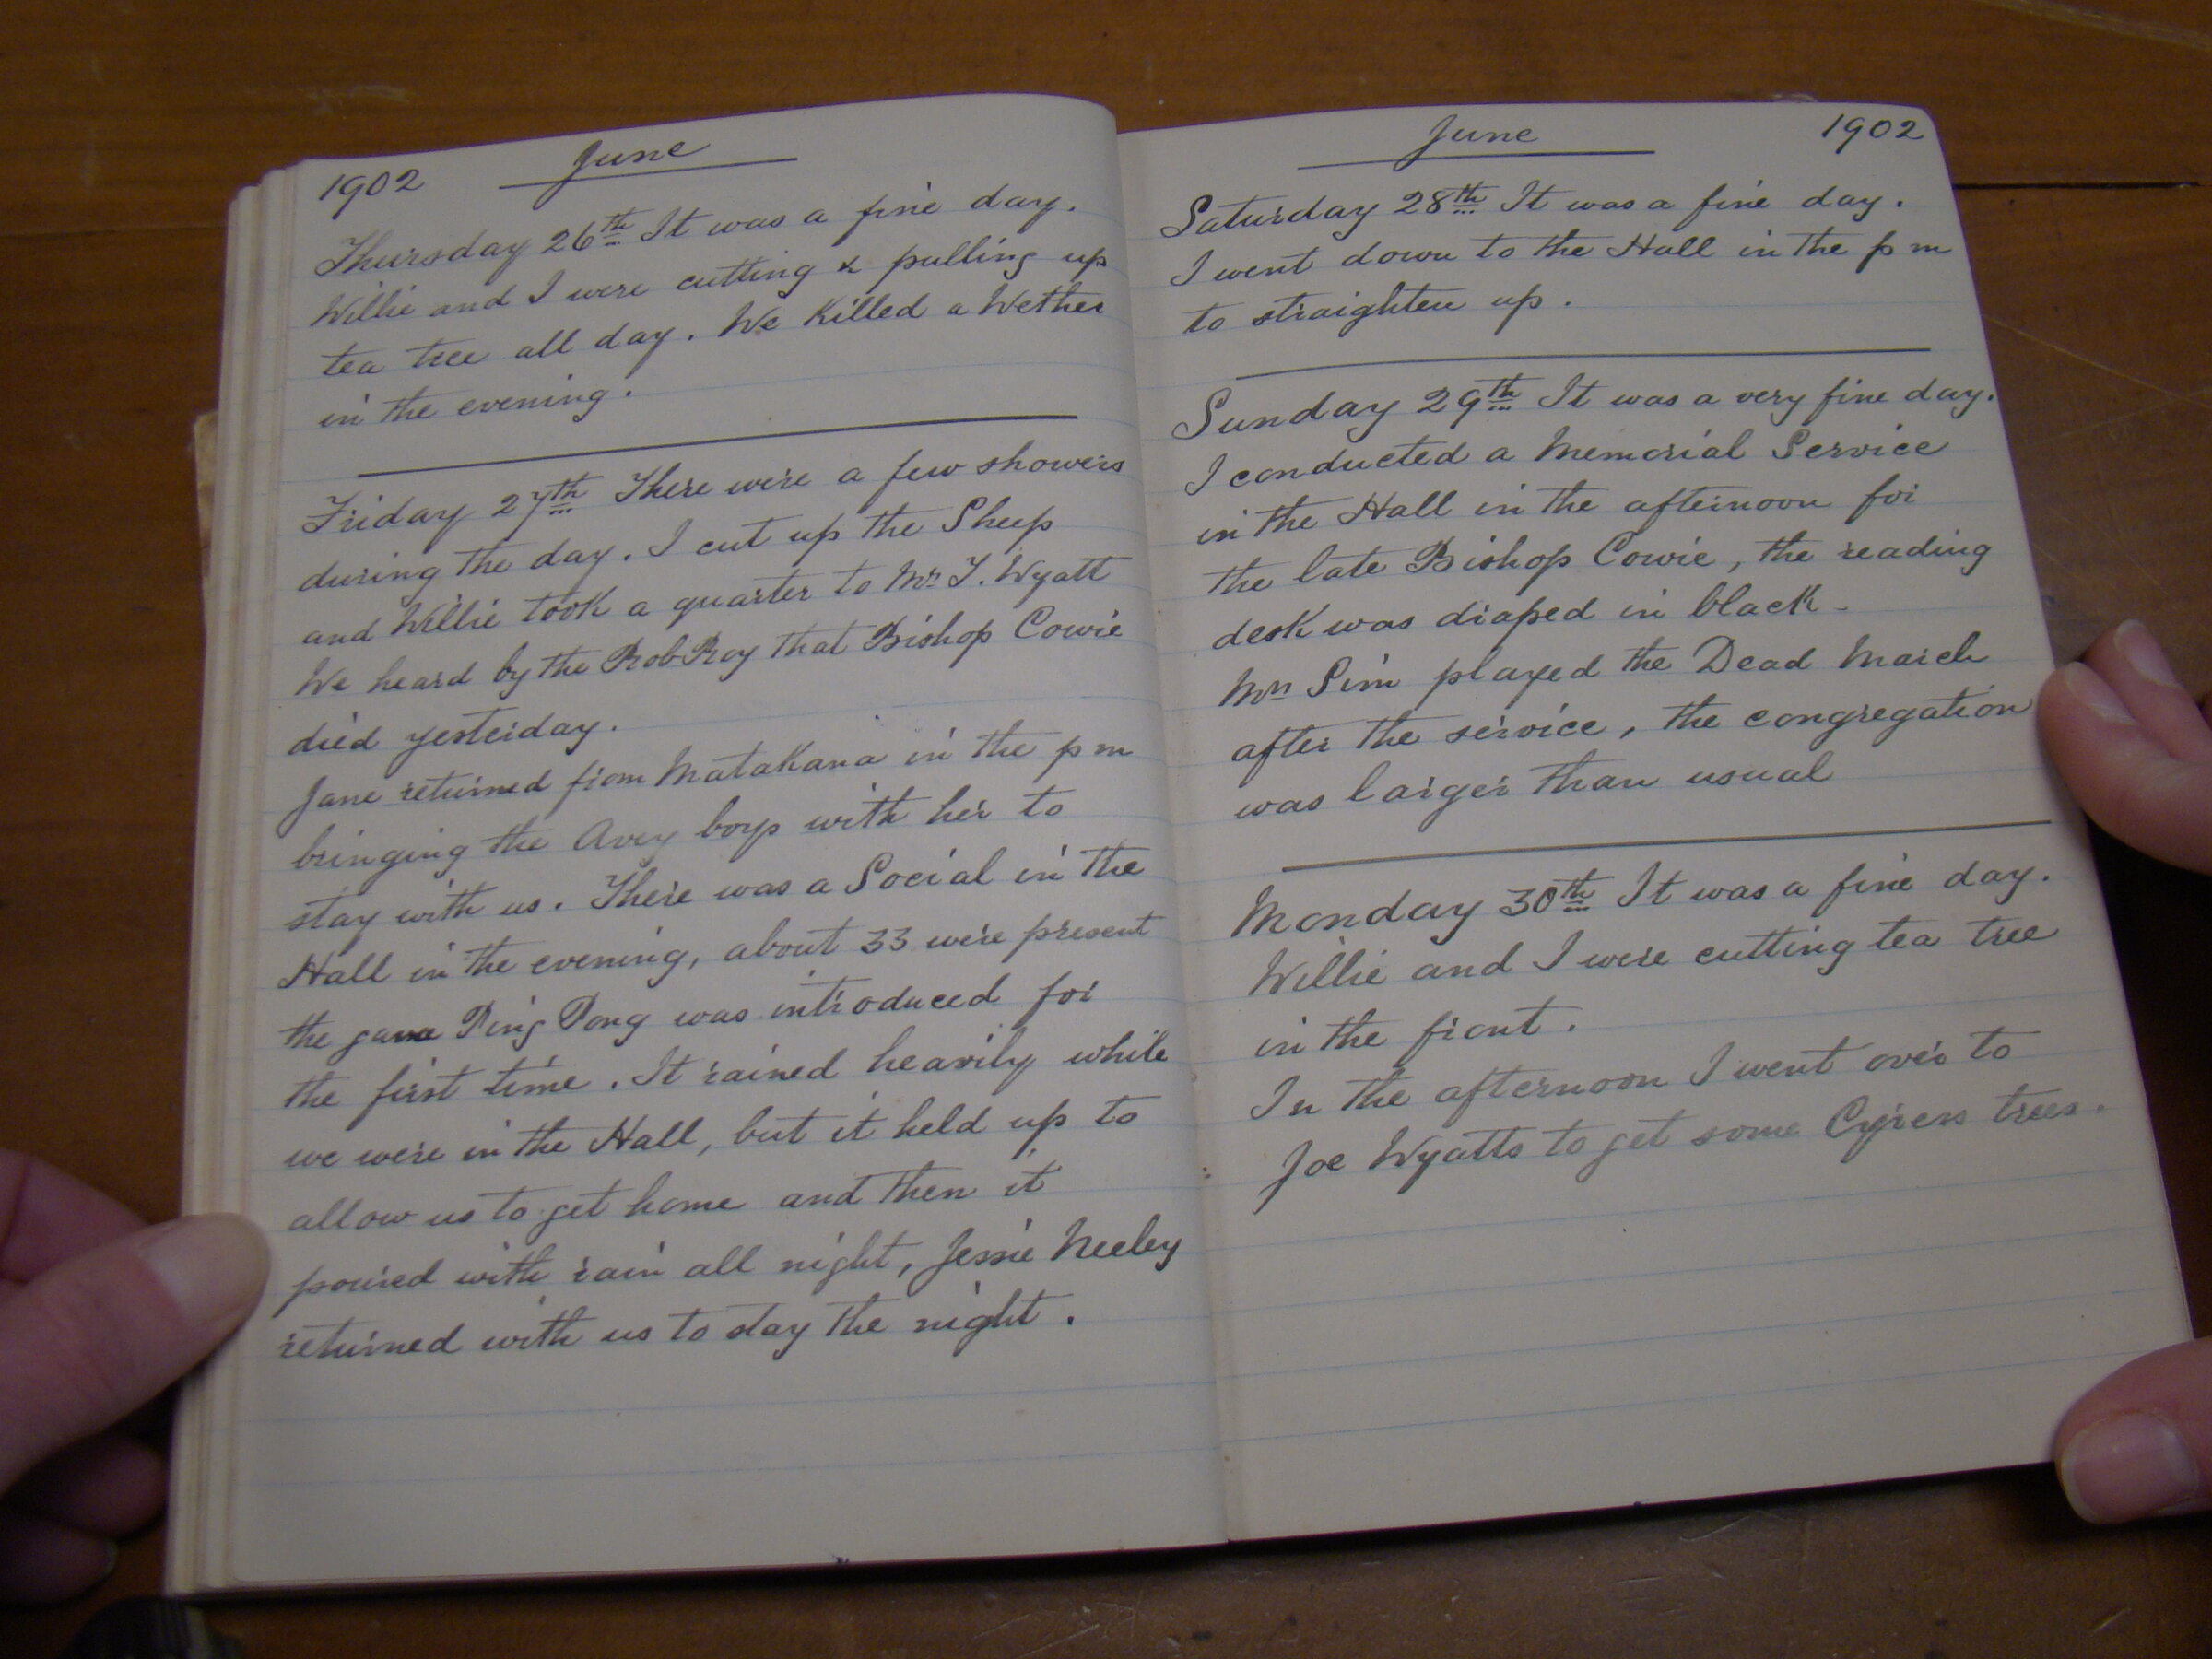 1902 June
Thursday 26th It was a fine day.
Willie and I were cutting & pulling up
tea tree all day. We Killed a Wether
in the evening.
Friday 27th There were a few showers
during the day. I cut up the Sheep
and Willie took a quarter to Mr T. Wyatt
We heard by the Rob Roy that Bishop Cowie
died yesterday.
Jane returned from Matakana in the p m
bringing the Avey boys with her to
stay with us. There was a Social in the
Hall in the evening, about 33 were present
the game Ping Pong was introduced for
the first time. It rained heavily while
we were in the Hall, but it held up to
allow us to get home and then it
poured with rain all night, Jessie Neeley
returned with us to stay the night.
June 1902
Saturday 28th It was a fine day.
I went down to the Hall in the p m
to straighten up.
Sunday 29th It was a very fine day.
I conducted a Memorial Service
in the Hall in the afternoon for
the late Bishop Cowie, the reading
desk was draped in black -
Mrs Sim played the Dead March
after the service, the congregation
was larger than usual
Monday 30th It was a fine day.
Willie and I were cutting tea tree
in the front.
In the afternoon I went over to
Joe Wyatts to get some Cypress trees.